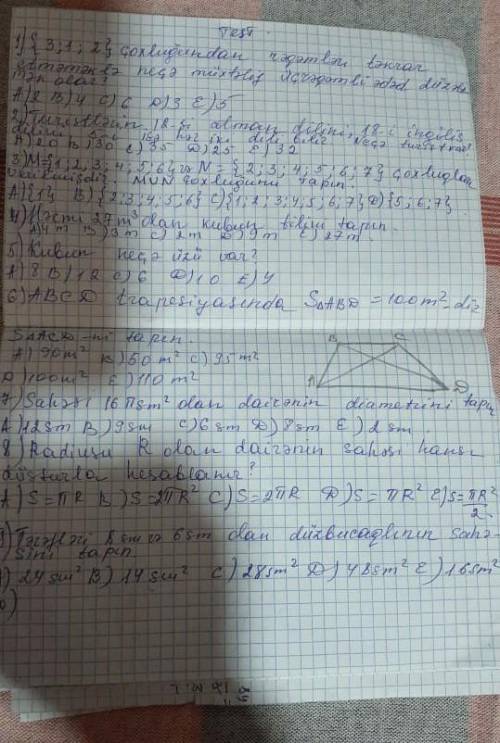 Test.
1) {3; 1; 2} çoxluğundan rəqəmləri təkrar
etməməklə neçə müxtəlif üçrəqəmli ədəd düzəlt
mək olar?
A) 2 B) 4 C) 6 D) 3 E) 5
2) Turistlərin 18-i alman dilini, 18-i ingilis
dilini, isə hər iki dili bilir. Neçə turist var?
A) 20 B) 30 C) 35 D) 25 E) 32
3) M={1; 2; 3; 4; 5; 6} və N={2; 3; 4; 5; 6; 7} çoxluqları
verilmişdir. MUN çoxluğunu tapın.
A) {1} B) {2; 3; 4; 5; 6} C) {1; 2; 3; 4; 5; 6; 7} D) {5; 6; 7}
4) Həcmi 27 m³ olan kubun tilini tapın.
A) 4 m B) 3m C) 2 m D) 9 m E) 27 m
5) Kubun neçə üzü var?
A) 8 B) 12 C) 6 D) 10 E) 4
6) ABCD trapesiyasında S△ABD = 100m²-dır
S△ACD-ni tapın.
A) 90m² B) 60 m² C) 95 m²
D) 100m² E) 110 m²
B C
A D
7) Sahəsi 16πsm² olan dairənin diametrini tapın
A) 12sm B) 9sm C) 6 sm D) 8sm E) 2 sm
8) Radiusu R olan dairənin sahəsi hansı
düsturla hesablanır?
A) S=πR B) S=2πR² C) S=2πR D) S=πR² E) S=πR²/2
9) Tərəfləri 8 sm və 6sm olan düzbucaqlının sahə-
sini tapın.
A) 24sm² B) 14sm² C) 28sm² D) 48sm² E) 16sm²